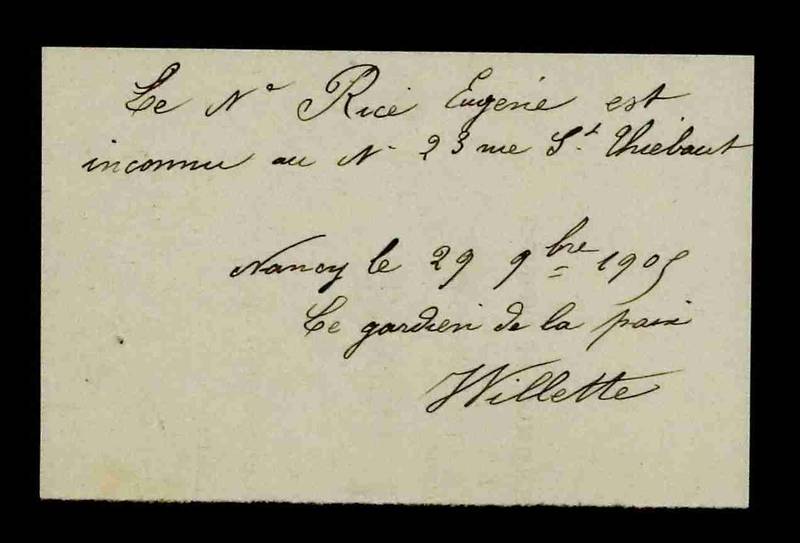 Le Nᵉ Ricé Eugène est
inconnu au Nᵒ 23 rue Sᵗ Thiébaut
Nancy le 29 9bre 1905
Le gardien de la paix
Willette